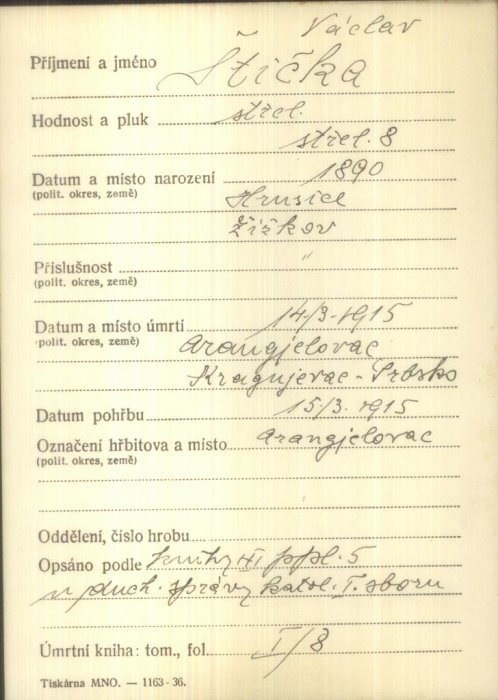 Václav
Příjmení a jméno Štička
Hodnost a pluk střel.
střel. 8
Datum a místo narození 1890
(polit. okres, země) Hrusice
Žižkov
Příslušnost "
(polit. okres, země)
Datum a místo úmrtí 14/3. 1915
(polit. okres, země) Arangjelovac
Kragujevac - Srbsko
Datum pohřbu 15/3. 1915
Označení hřbitova a místo Arangjelovac
(polit. okres, země)
Oddělení, číslo hrobu
Opsáno podle knihy III ppl. 5
u duch. správy katol. I. sboru
Úmrtní kniha: tom., fol. I/8
Tiskárna MNO. — 1163-36.